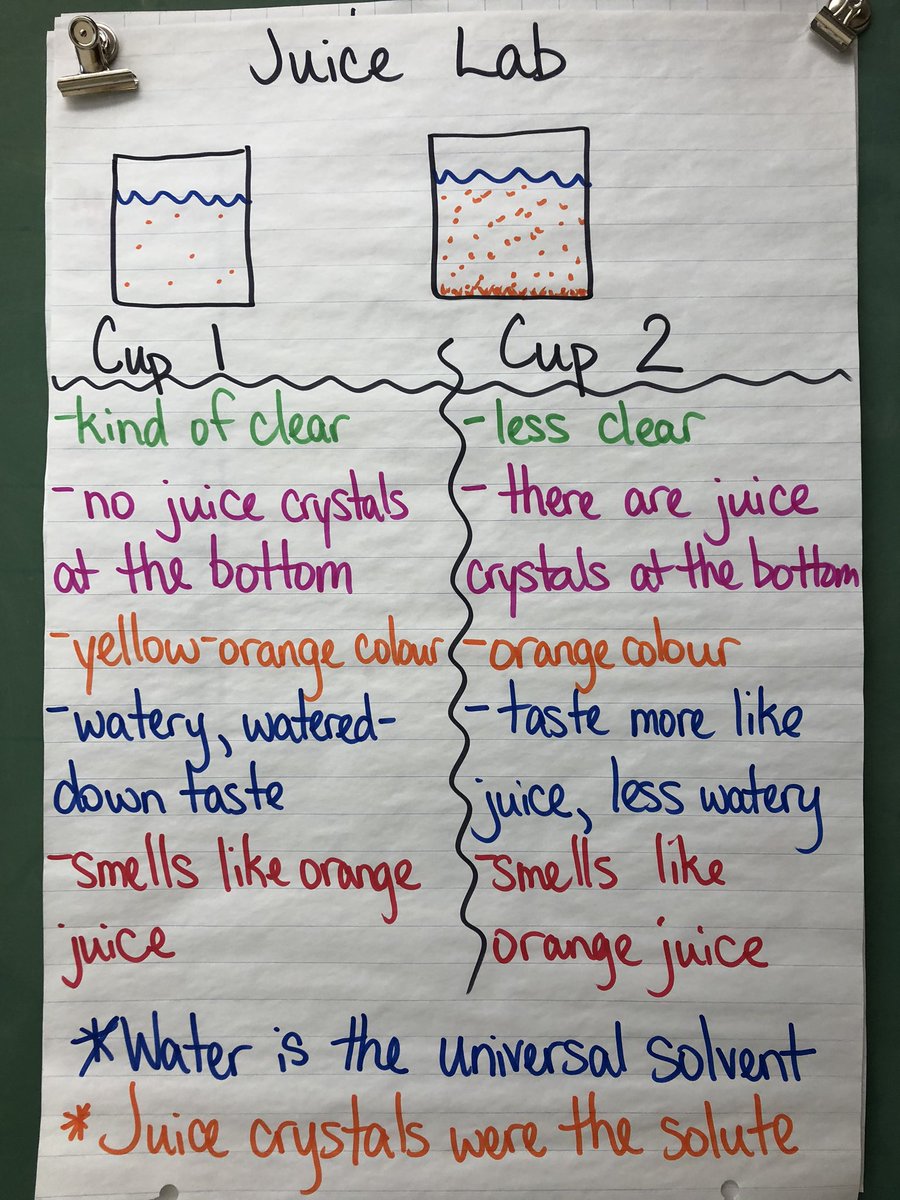 Juice Lab
Cup 1
-kind of clear
-no juice crystals
at the bottom
-yellow-orange colour
-watery, watered-
down taste
-smells like orange
juice
Cup 2
-less clear
-there are juice
crystals at the bottom
-orange colour
-taste more like
juice, less watery
-smells like
orange juice
*Water is the universal solvent
*Juice crystals were the solute